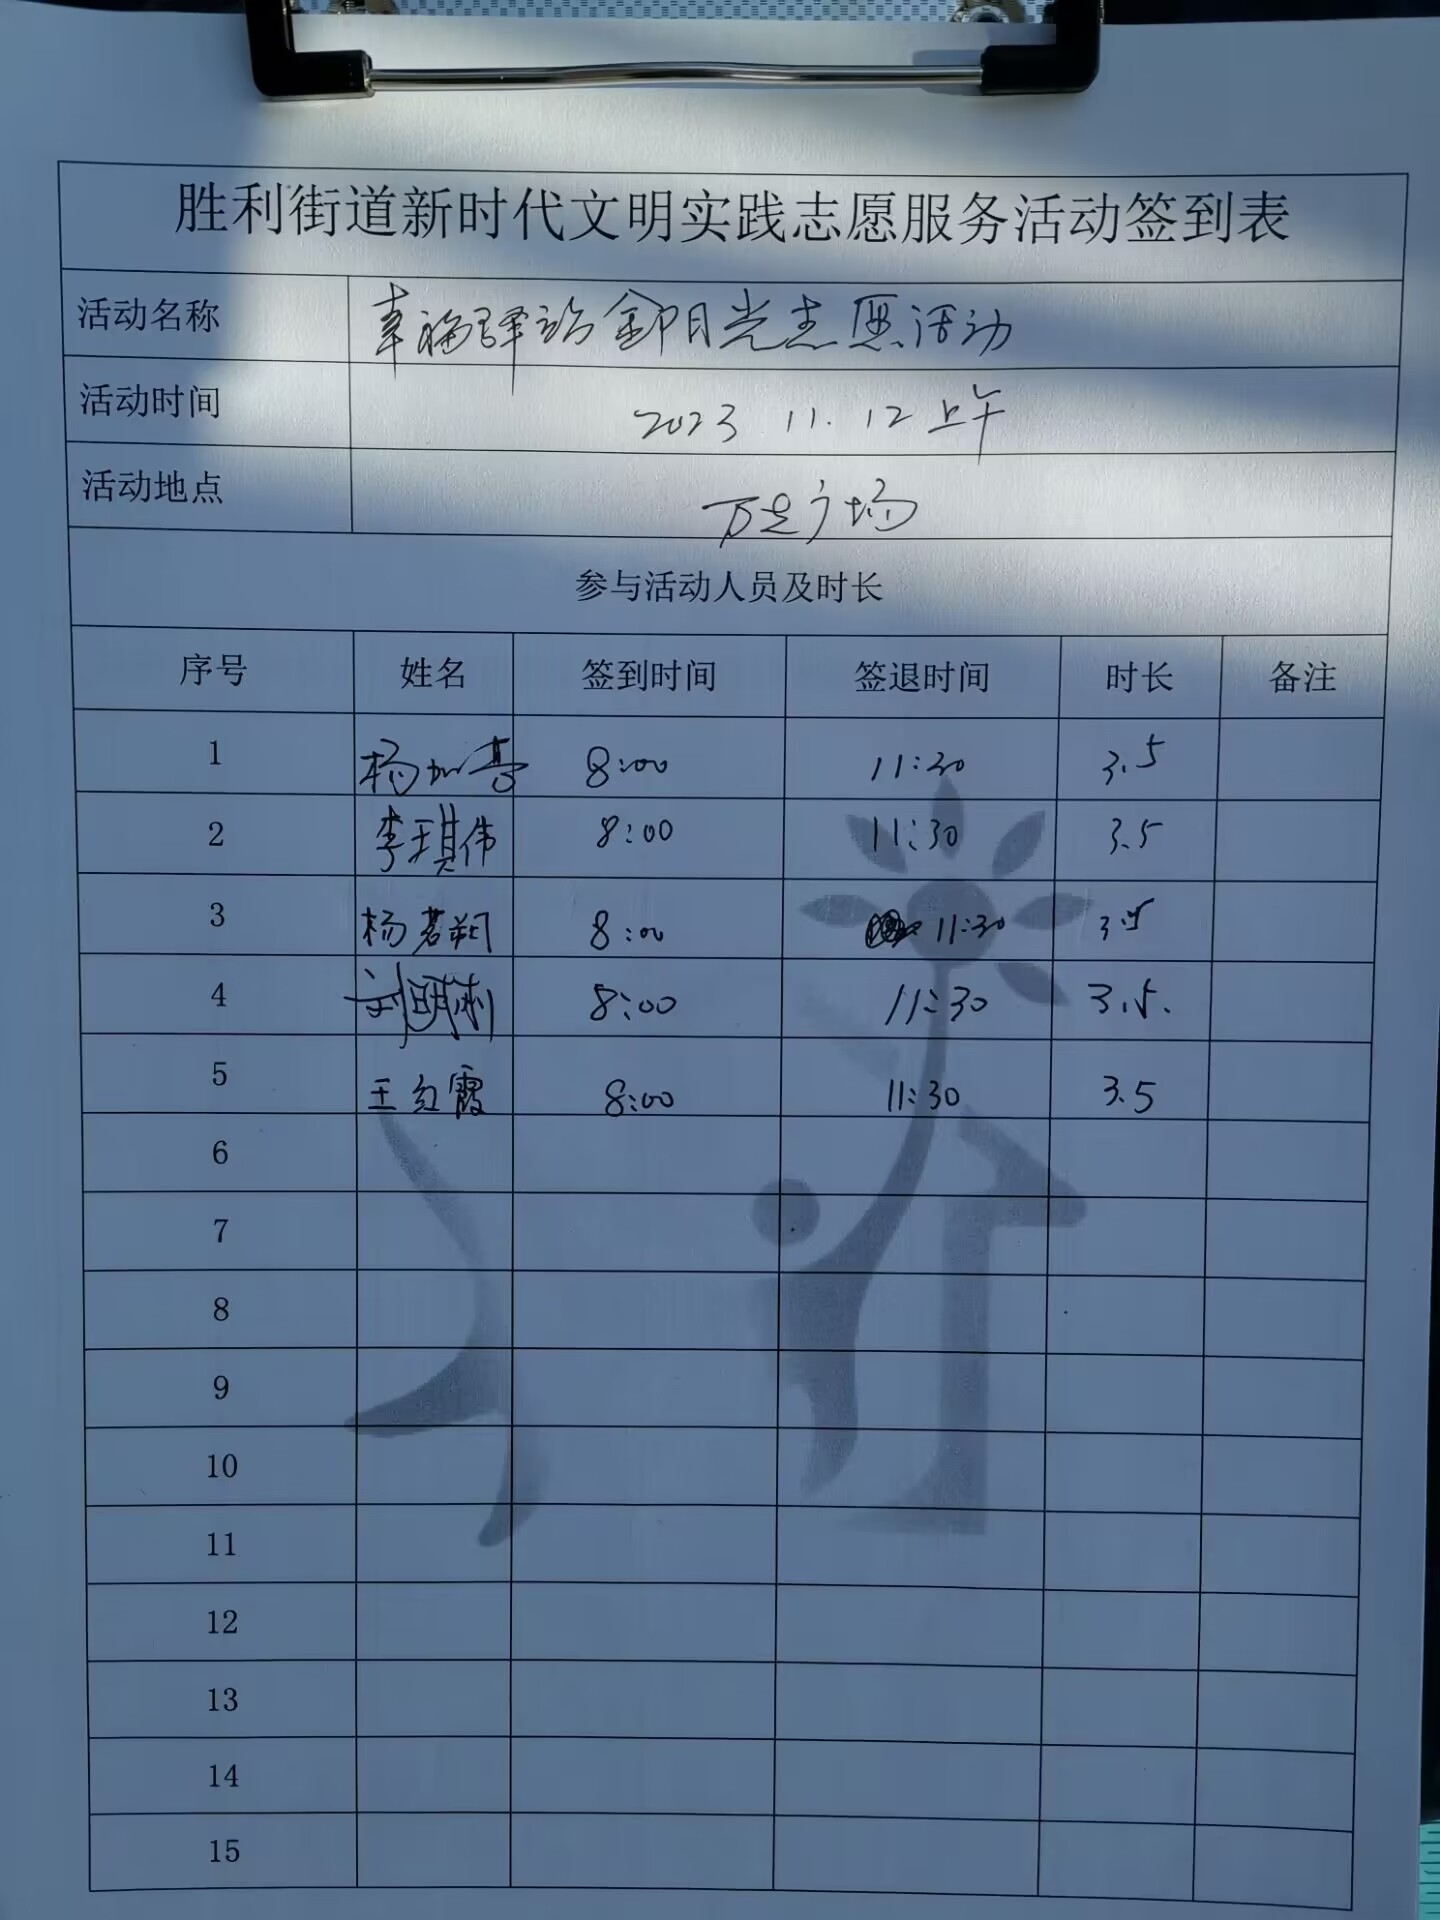 胜利街道新时代文明实践志愿服务活动签到表
活动名称 幸福驿站金阳光志愿活动
活动时间 2023 11.12 上午
活动地点 万达广场
参与活动人员及时长
序号 姓名 签到时间 签退时间 时长 备注
1 杨 8:00 11:30 3.5
2 李琪伟 8:00 11:30 3.5
3 杨若朔 8:00 11:30 3.5
4 刘明利 8:00 11:30 3.5.
5 王红霞 8:00 11:30 3.5
6
7
8
9
10
11
12
13
14
15